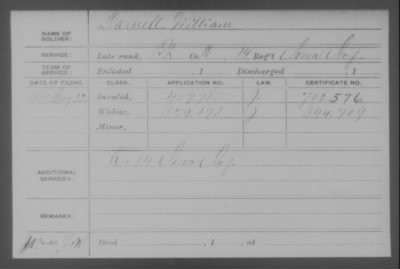 NAME OF SOLDIER: Darnell William
SERVICE: Late rank, Co. 14 Reg't Iowa Inf.
TERM OF SERVICE: Enlisted , 1 Discharged , 1
DATE OF FILING. CLASS. APPLICATION NO. LAW. CERTIFICATE NO.
Invalid, J. 702 576
Widow, 579.173 J 394.709
Minor,
ADDITIONAL SERVICES: 14 Iowa Inf.
REMARKS:
Died , 1 , at